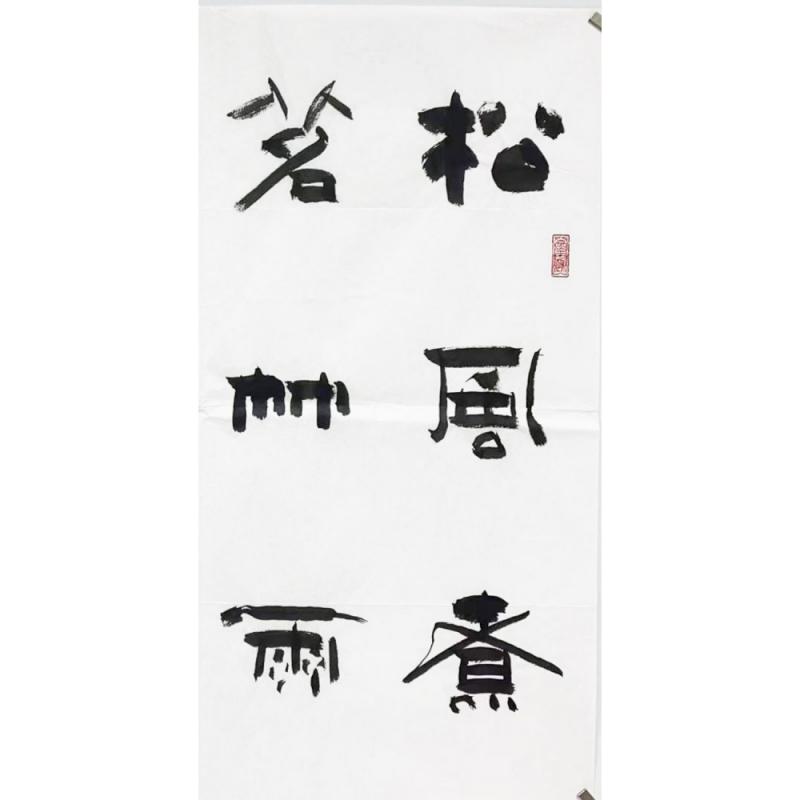 松風煮
茗竹雨